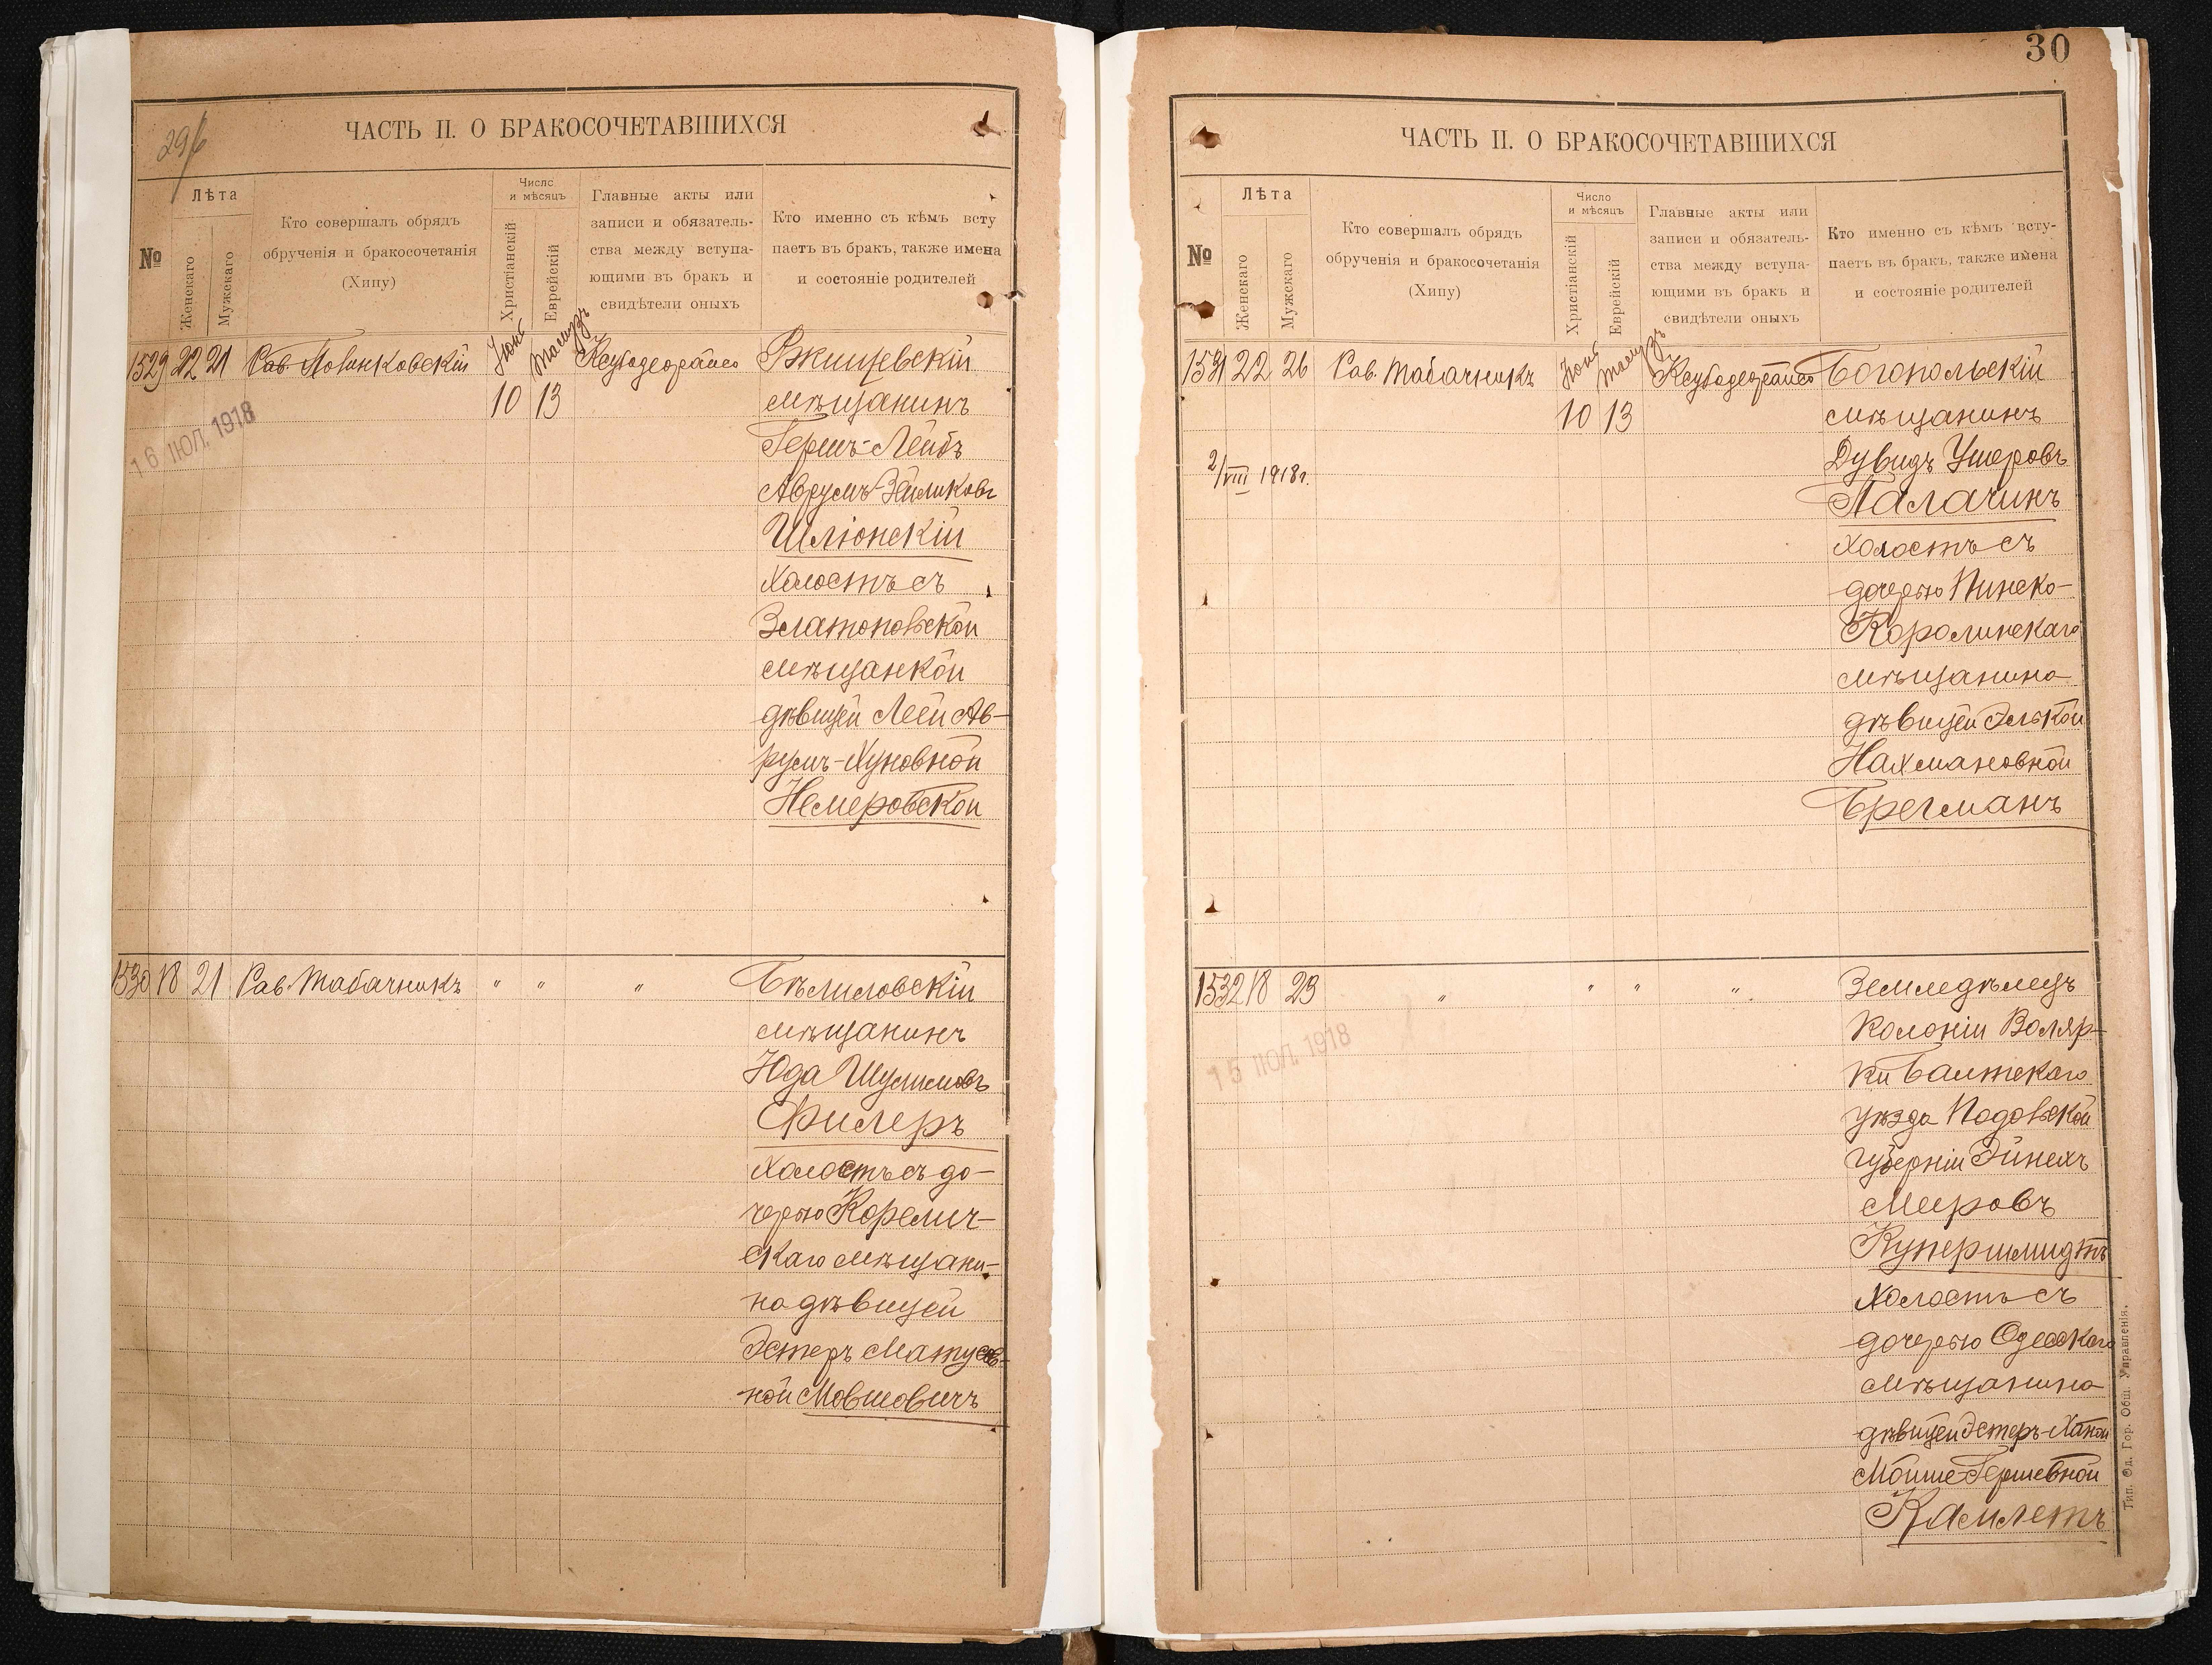 296
ЧАСТЬ II. О БРАКОСОЧЕТАВШИХСЯ
№
Лѣта
Женскаго
Мужскаго
Кто совершалъ обрядъ
обрученія и бракосочетанія
(Хипу)
Число
и мѣсяцъ
Христіанскій
Еврейскій
Главные акты или
записи и обязатель-
ства между вступа-
ющими въ бракъ и
свидѣтели оныхъ
Кто именно съ кѣмъ всту
паетъ въ бракъ, также имена
и состояніе родителей
1529 22 21 Рав. Іюня Тамузъ Ржищевскій
10 13 мѣщанинъ
16 ІЮЛ. 1918
Гершъ-Лейбъ
Аврумъ-Зейликовъ
Шліонскій
холостъ съ
Златопольской
мѣщанкой
дѣвицей Леей Ав-
румъ-Хуновной
Немеровской
1530 18 21 Рав. Табачникъ " " " Бѣлиловскій
мѣщанинъ
Юда Шулимовъ
Филеръ
холостъ съ до-
черью Корелич-
скаго мѣщани-
на дѣвицей
Эстеръ Матусов-
ной Мовшовичъ
30
ЧАСТЬ II. О БРАКОСОЧЕТАВШИХСЯ
№
Лѣта
Женскаго
Мужскаго
Кто совершалъ обрядъ
обрученія и бракосочетанія
(Хипу)
Число
и мѣсяцъ
Христіанскій
Еврейскій
Главные акты или
записи и обязатель-
ства между вступа-
ющими въ бракъ и
свидѣтели оныхъ
Кто именно съ кѣмъ всту-
паетъ въ бракъ, также имена
и состояніе родителей
1531 22 26 Рав. Табачникъ Іюня Тамузъ Богопольскій
10 13 мѣщанинъ
2/VIII 1918 г.
Дувидъ Ушеровъ
Палачикъ
холостъ съ
дочерью Пинско-
Каролинскаго
мѣщанина
дѣвицей Элькой
Нахмановной
Брегманъ
1532 18 23 " " " " Земледѣлецъ
15 ІЮЛ. 1918
колоніи Воляр-
ки Балтскаго
уѣзда Подольской
губерніи Эйнехъ
Мееровъ
Купершмидтъ
холостъ съ
дочерью Одесскаго
мѣщанина
дѣвицей Эстеръ-Ханой
Мойше-Гершевной
Камлетъ
Тип. Од. Гор. Общ. Управленія.